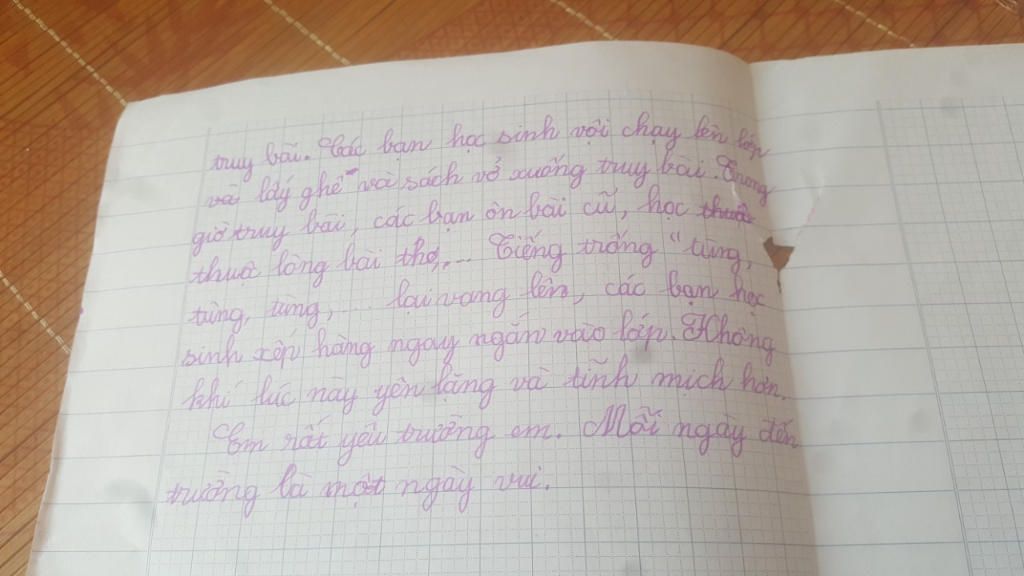 truy bài. Các bạn học sinh vội chạy lên lớp
và lấy ghế và sách vở xuống truy bài. Trong
giờ truy bài, các bạn ôn bài cũ, học thuộc
thuộc lòng bài thơ,... Tiếng trống "tùng,
tùng, tùng,... lại vang lên, các bạn học
sinh xếp hàng ngay ngắn vào lớp. Không
khí lúc này yên lặng và tĩnh mịch hơn.
Em rất yêu trường em. Mỗi ngày đến
trường là một ngày vui.